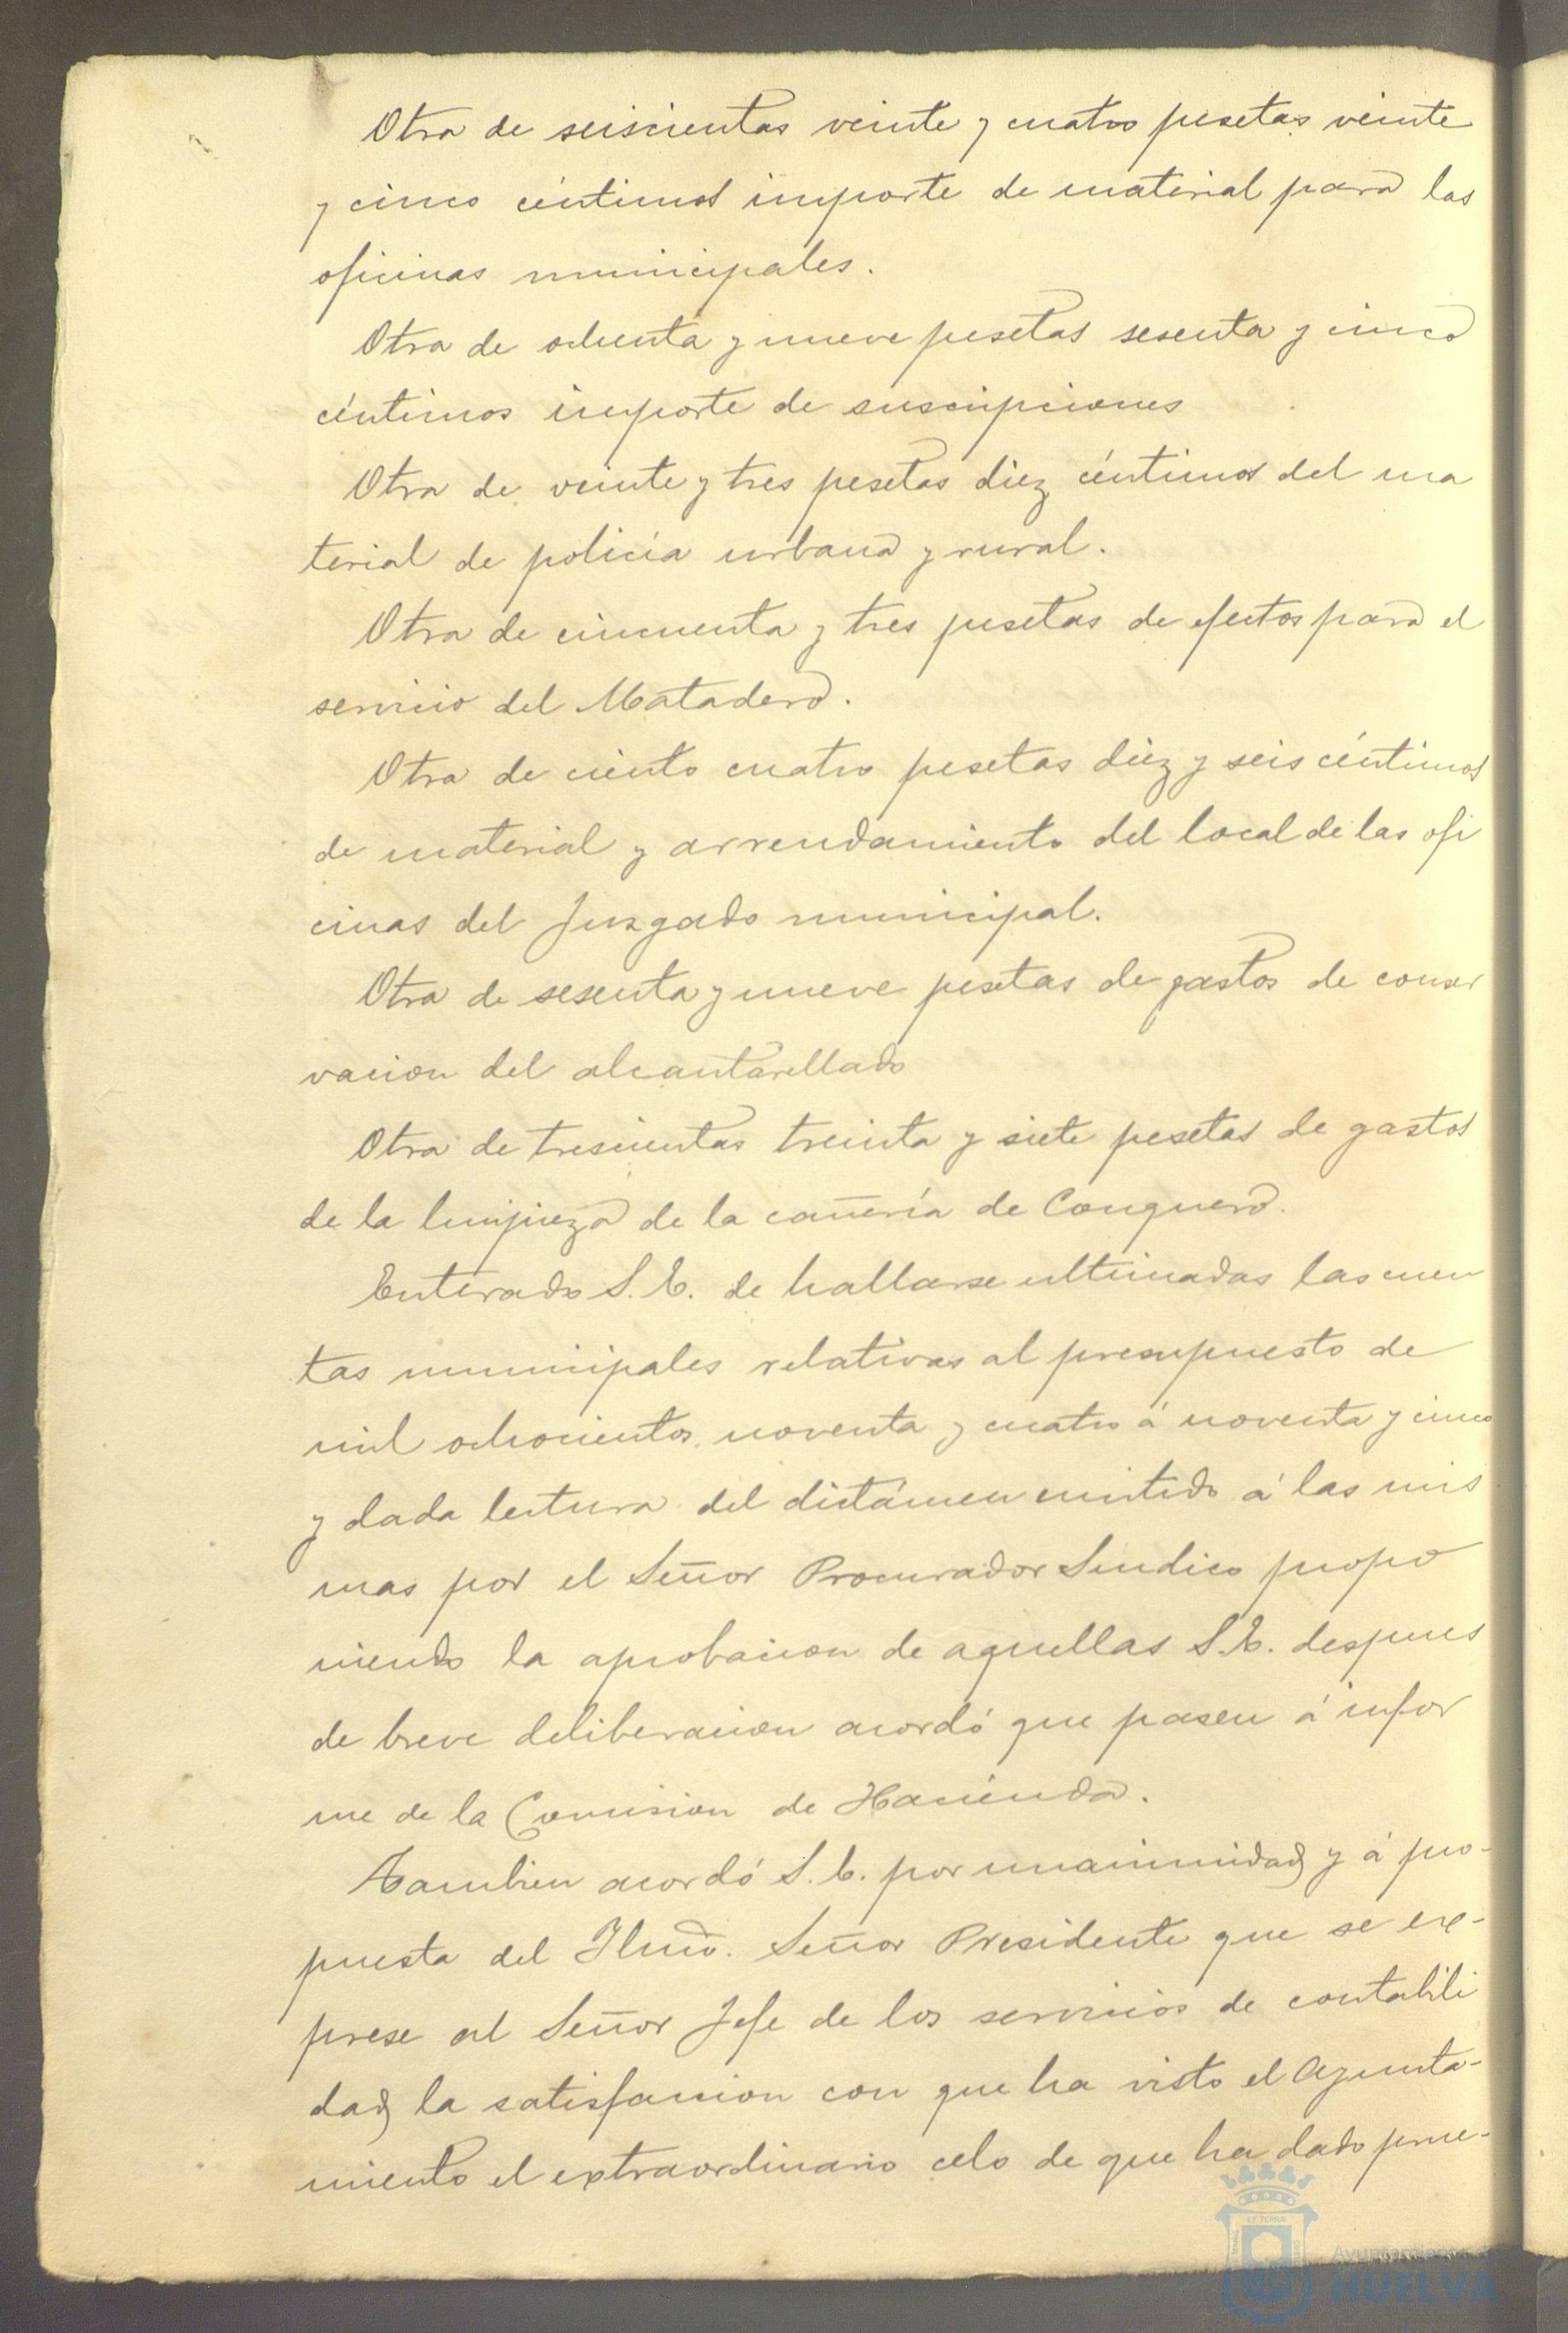 Otra de seiscientas veinte y cuatro pesetas veinte
y cinco céntimos importe de material para las
oficinas municipales.
Otra de ochenta y nueve pesetas sesenta y cinco
céntimos importe de suscripciones
Otra de veinte y tres pesetas diez céntimos del ma
terial de policía urbana y rural.
Otra de cincuenta y tres pesetas de efectos para el
servicio del Matadero.
Otra de ciento cuatro pesetas diez y seis céntimos
de material y arrendamiento del local de las ofi
cinas del Juzgado municipal.
Otra de sesenta y nueve pesetas de gastos de conser
vacion del alcantarellado
Otra de trescientas treinta y siete pesetas de gastos
de la limpieza de la cañería de Conquero.
Enterado S.E. de hallarse ultimadas las cuen
tas municipales relativas al presupuesto de
mil ochocientos noventa y cuatro á noventa y cinco
y dada lectura del dictámen emitido á las mis
mas por el Señor Procurador Sindico propo
niendo la aprobacion de aquellas S.E. despues
de breve deliberacion acordó que pasen á infor
me de la Comision de Hacienda.
Tambien acordó S.E. por unanimidad y á pro-
puesta del Ilmo. Señor Presidente que se ex-
prese al Señor Jefe de los servicios de contabili
dad la satisfaccion con que ha visto el Ayunta-
miento el extraordinario celo de que ha dado prue-
Ayuntamiento de
HUELVA